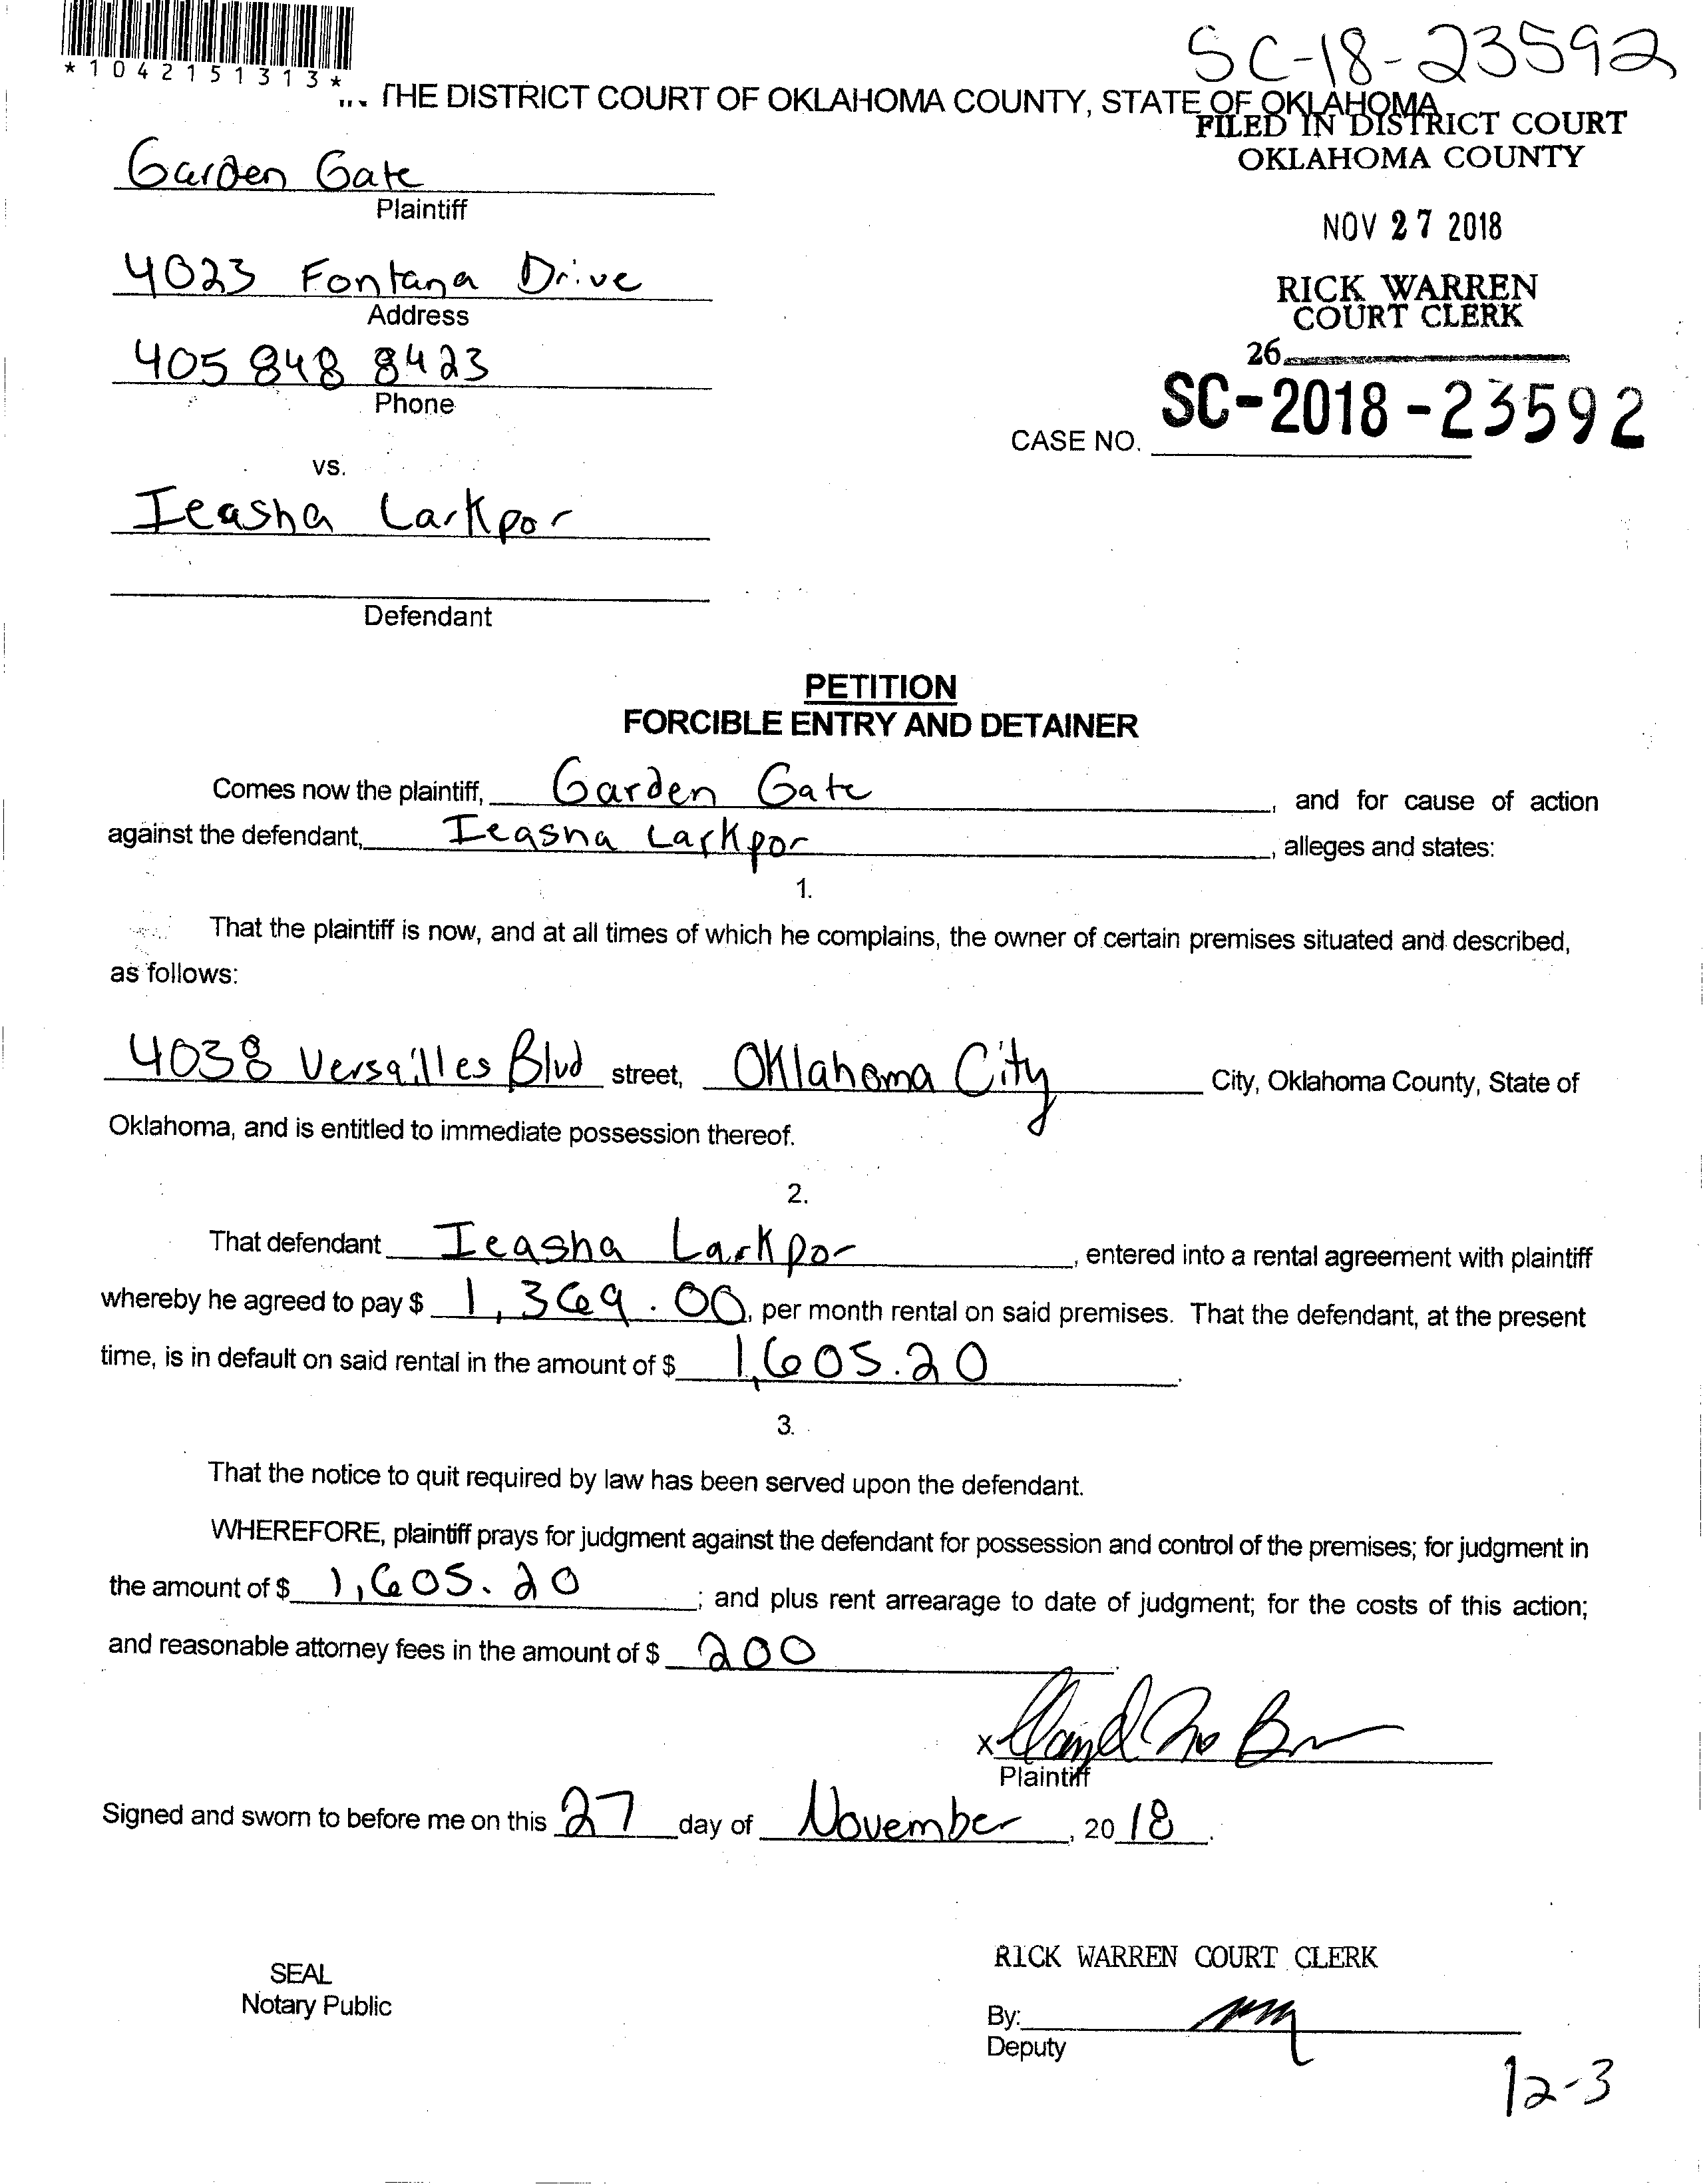 SC-18-23592
*1042151313*
THE DISTRICT COURT OF OKLAHOMA COUNTY, STATE OF OKLAHOMA
FILED IN DISTRICT COURT
OKLAHOMA COUNTY
Garden Gate
Plaintiff
NOV 27 2018
4023 Fontana Drive
Address
RICK WARREN
COURT CLERK
405 848 8423
Phone
26
CASE NO. SC-2018-23592
vs.
Ieasha Larkpor
Defendant
PETITION
FORCIBLE ENTRY AND DETAINER
Comes now the plaintiff, Garden Gate, and for cause of action
against the defendant, Ieasha Larkpor, alleges and states:
1.
That the plaintiff is now, and at all times of which he complains, the owner of certain premises situated and described,
as follows:
4038 Versailles Blvd street, Oklahoma City City, Oklahoma County, State of
Oklahoma, and is entitled to immediate possession thereof.
2.
That defendant Ieasha Larkpor, entered into a rental agreement with plaintiff
whereby he agreed to pay $ 1,369.00, per month rental on said premises. That the defendant, at the present
time, is in default on said rental in the amount of $ 1,605.20.
3.
That the notice to quit required by law has been served upon the defendant.
WHEREFORE, plaintiff prays for judgment against the defendant for possession and control of the premises; for judgment in
the amount of $ 1,605.20; and plus rent arrearage to date of judgment; for the costs of this action;
and reasonable attorney fees in the amount of $ 200.
x
Plaintiff
Signed and sworn to before me on this 27 day of November, 2018.
RICK WARREN COURT CLERK
SEAL
Notary Public
By:
Deputy
12-3